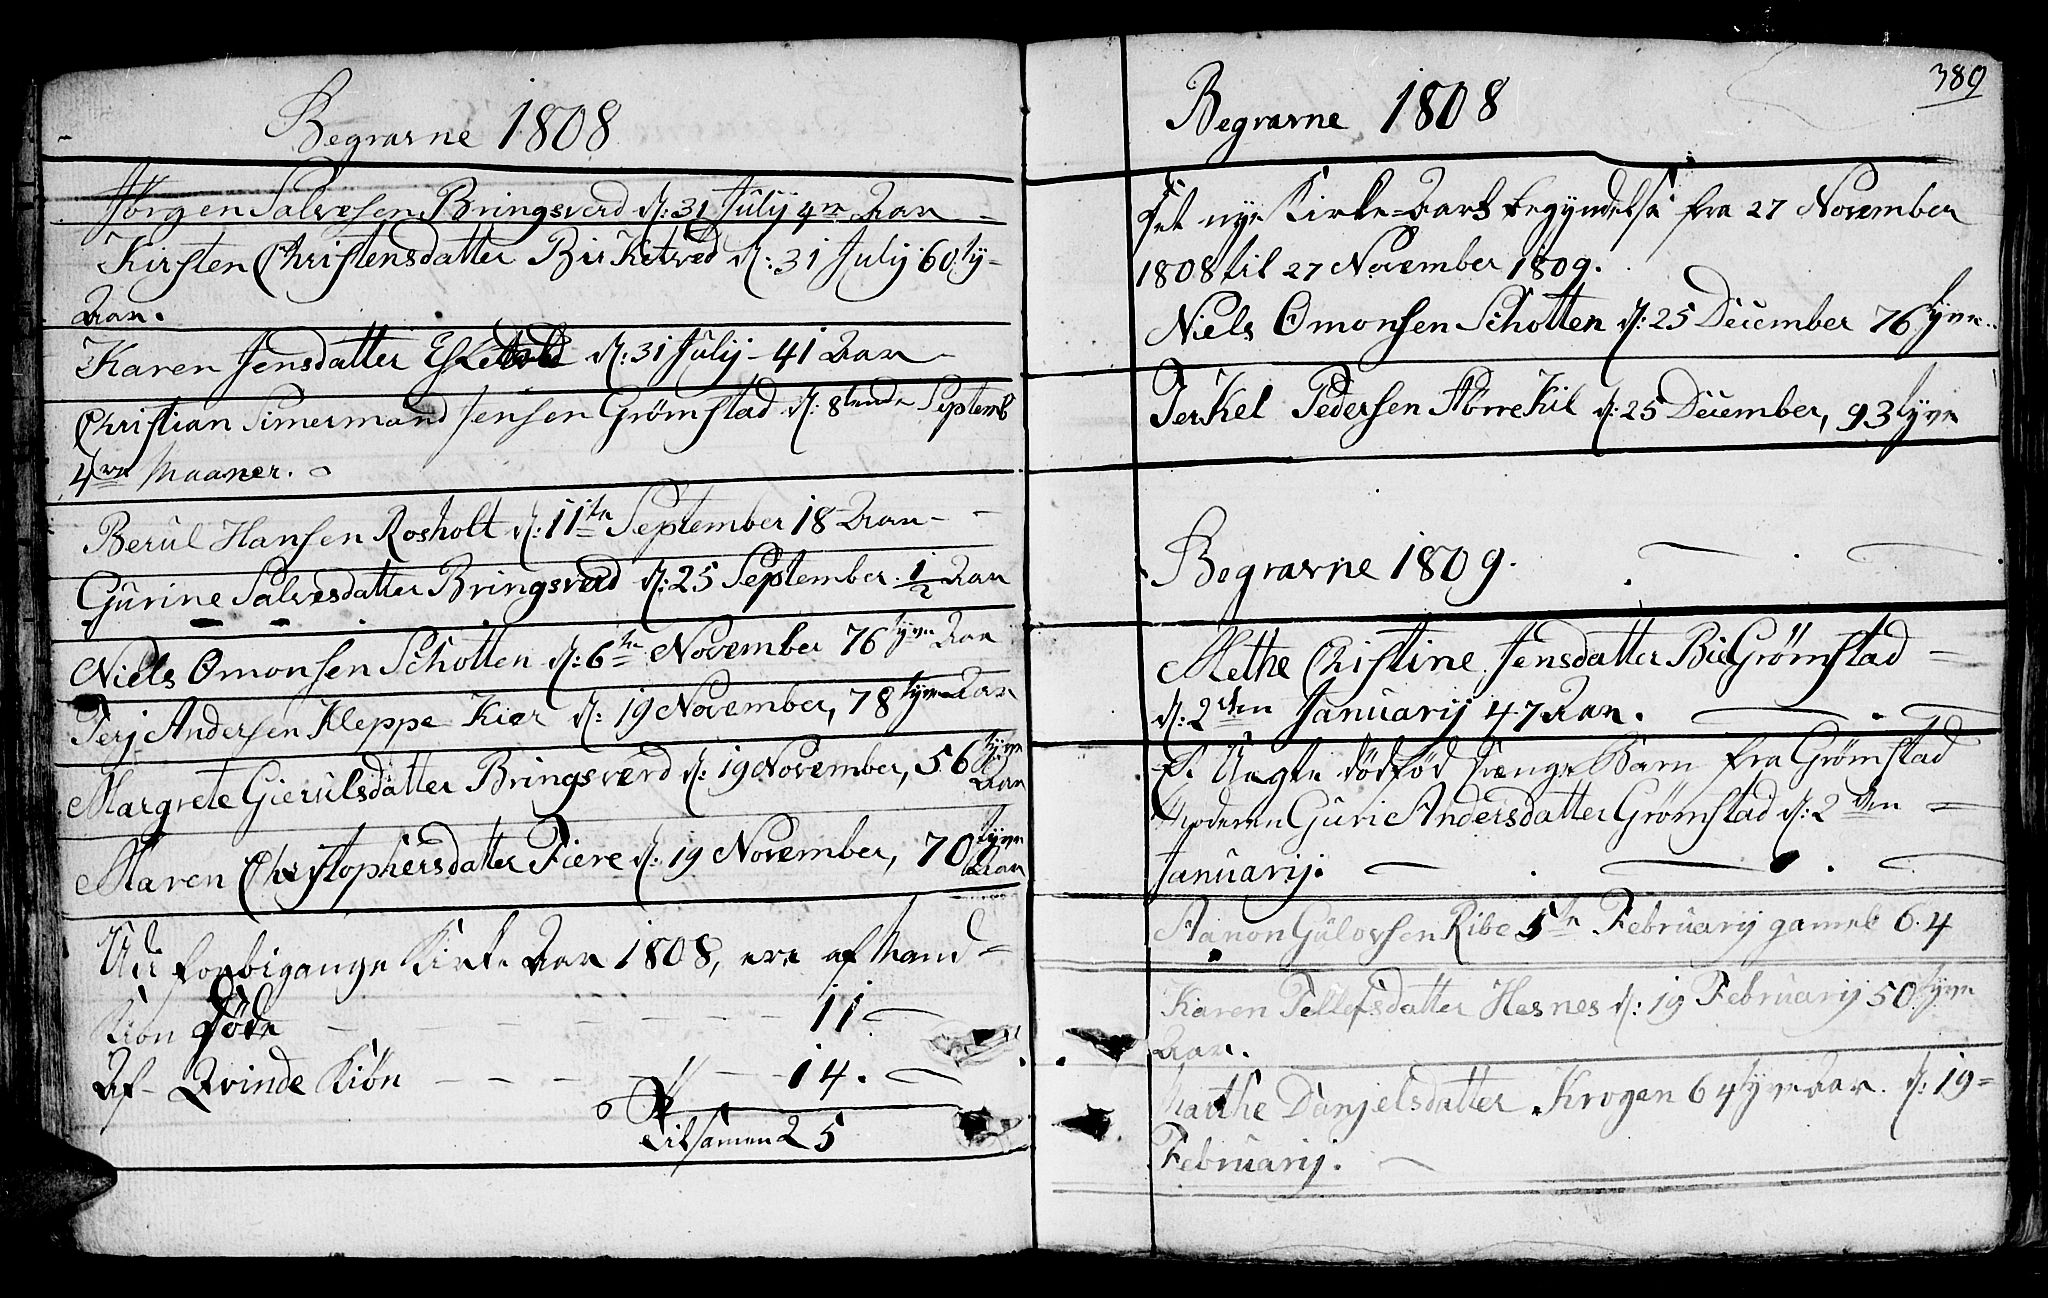 Begravne 1808
Jörgen Salvesen Bringsverd d: 31 Julij 4re Aar
Kirsten Christensdatter Birketved d: 31 Julij 60ty-
Aar.
Karen Jensdatter d: 31 Julij - 41 Aar
Christian Simermand Jensen Grømstad d: 8tende Septemb
4re Maaner.
Berul Hansen Rosholt d: 11te September 18 Aar -
Gurine Salvesdatter Bringsverd d: 25 September 1/2 Aar
Niels Omonsen Schotten d: 6te November 76tyve Aar
Terj Andersen Kleppe Kier d: 19 November, 78tyve Aar
Margrete Gierulsdatter Bringsverd d: 19 November, 56tyve
Aar
Maren Christophersdatter Fiere d: 19 November, 70tyve
Aar
Udi forbigangne Kirke Aar 1808, ere af Mand-
Kiön Döde - - - - - - 11
Af - Qvinde Kiön - - - - - 14.
Tilsamen 25
389
Begravne 1808
Det nye Kirke-Aars begyndelse fra 27 November
1808 til 27 November 1809.
Niels Omonsen Schotten d: 25 December 76tyve
Terkel Pedersen Störrekil d: 25 December, 93tyve
Begravne 1809.
Methe Christine Jensdatter Bie Grömstad
d: 2den Januarij 47 Aar.
Et Uægte dödfød Drenge Barn fra Grømstad
Moderen Guri Andersdatter Grømstad d: 2den
Januarij.
Aanon Gulovsen Ribe 5te Februarij gamel 64
Karen Tellefsdatter Hesnes d: 19 Februarij 50tyve
Aar.
Marthe Danjelsdatter Krogen 64tyve Aar. d: 19-
Februarij.